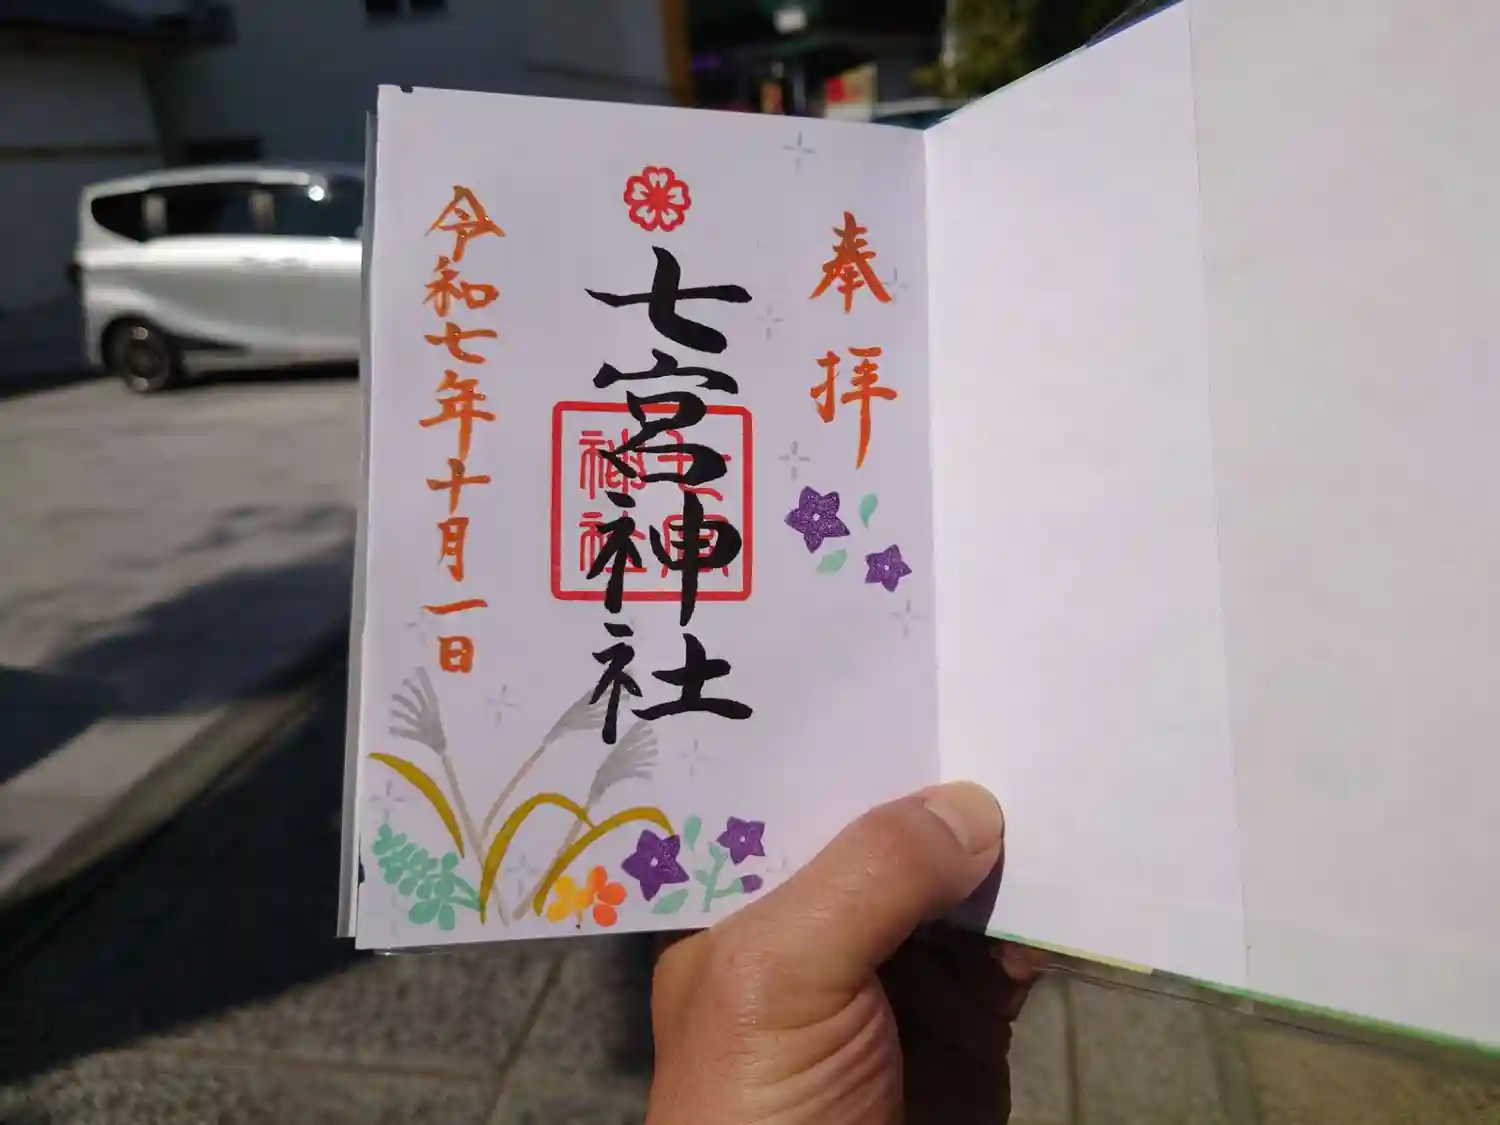 奉拝
七宮神社
七宮神社
令和七年十月一日